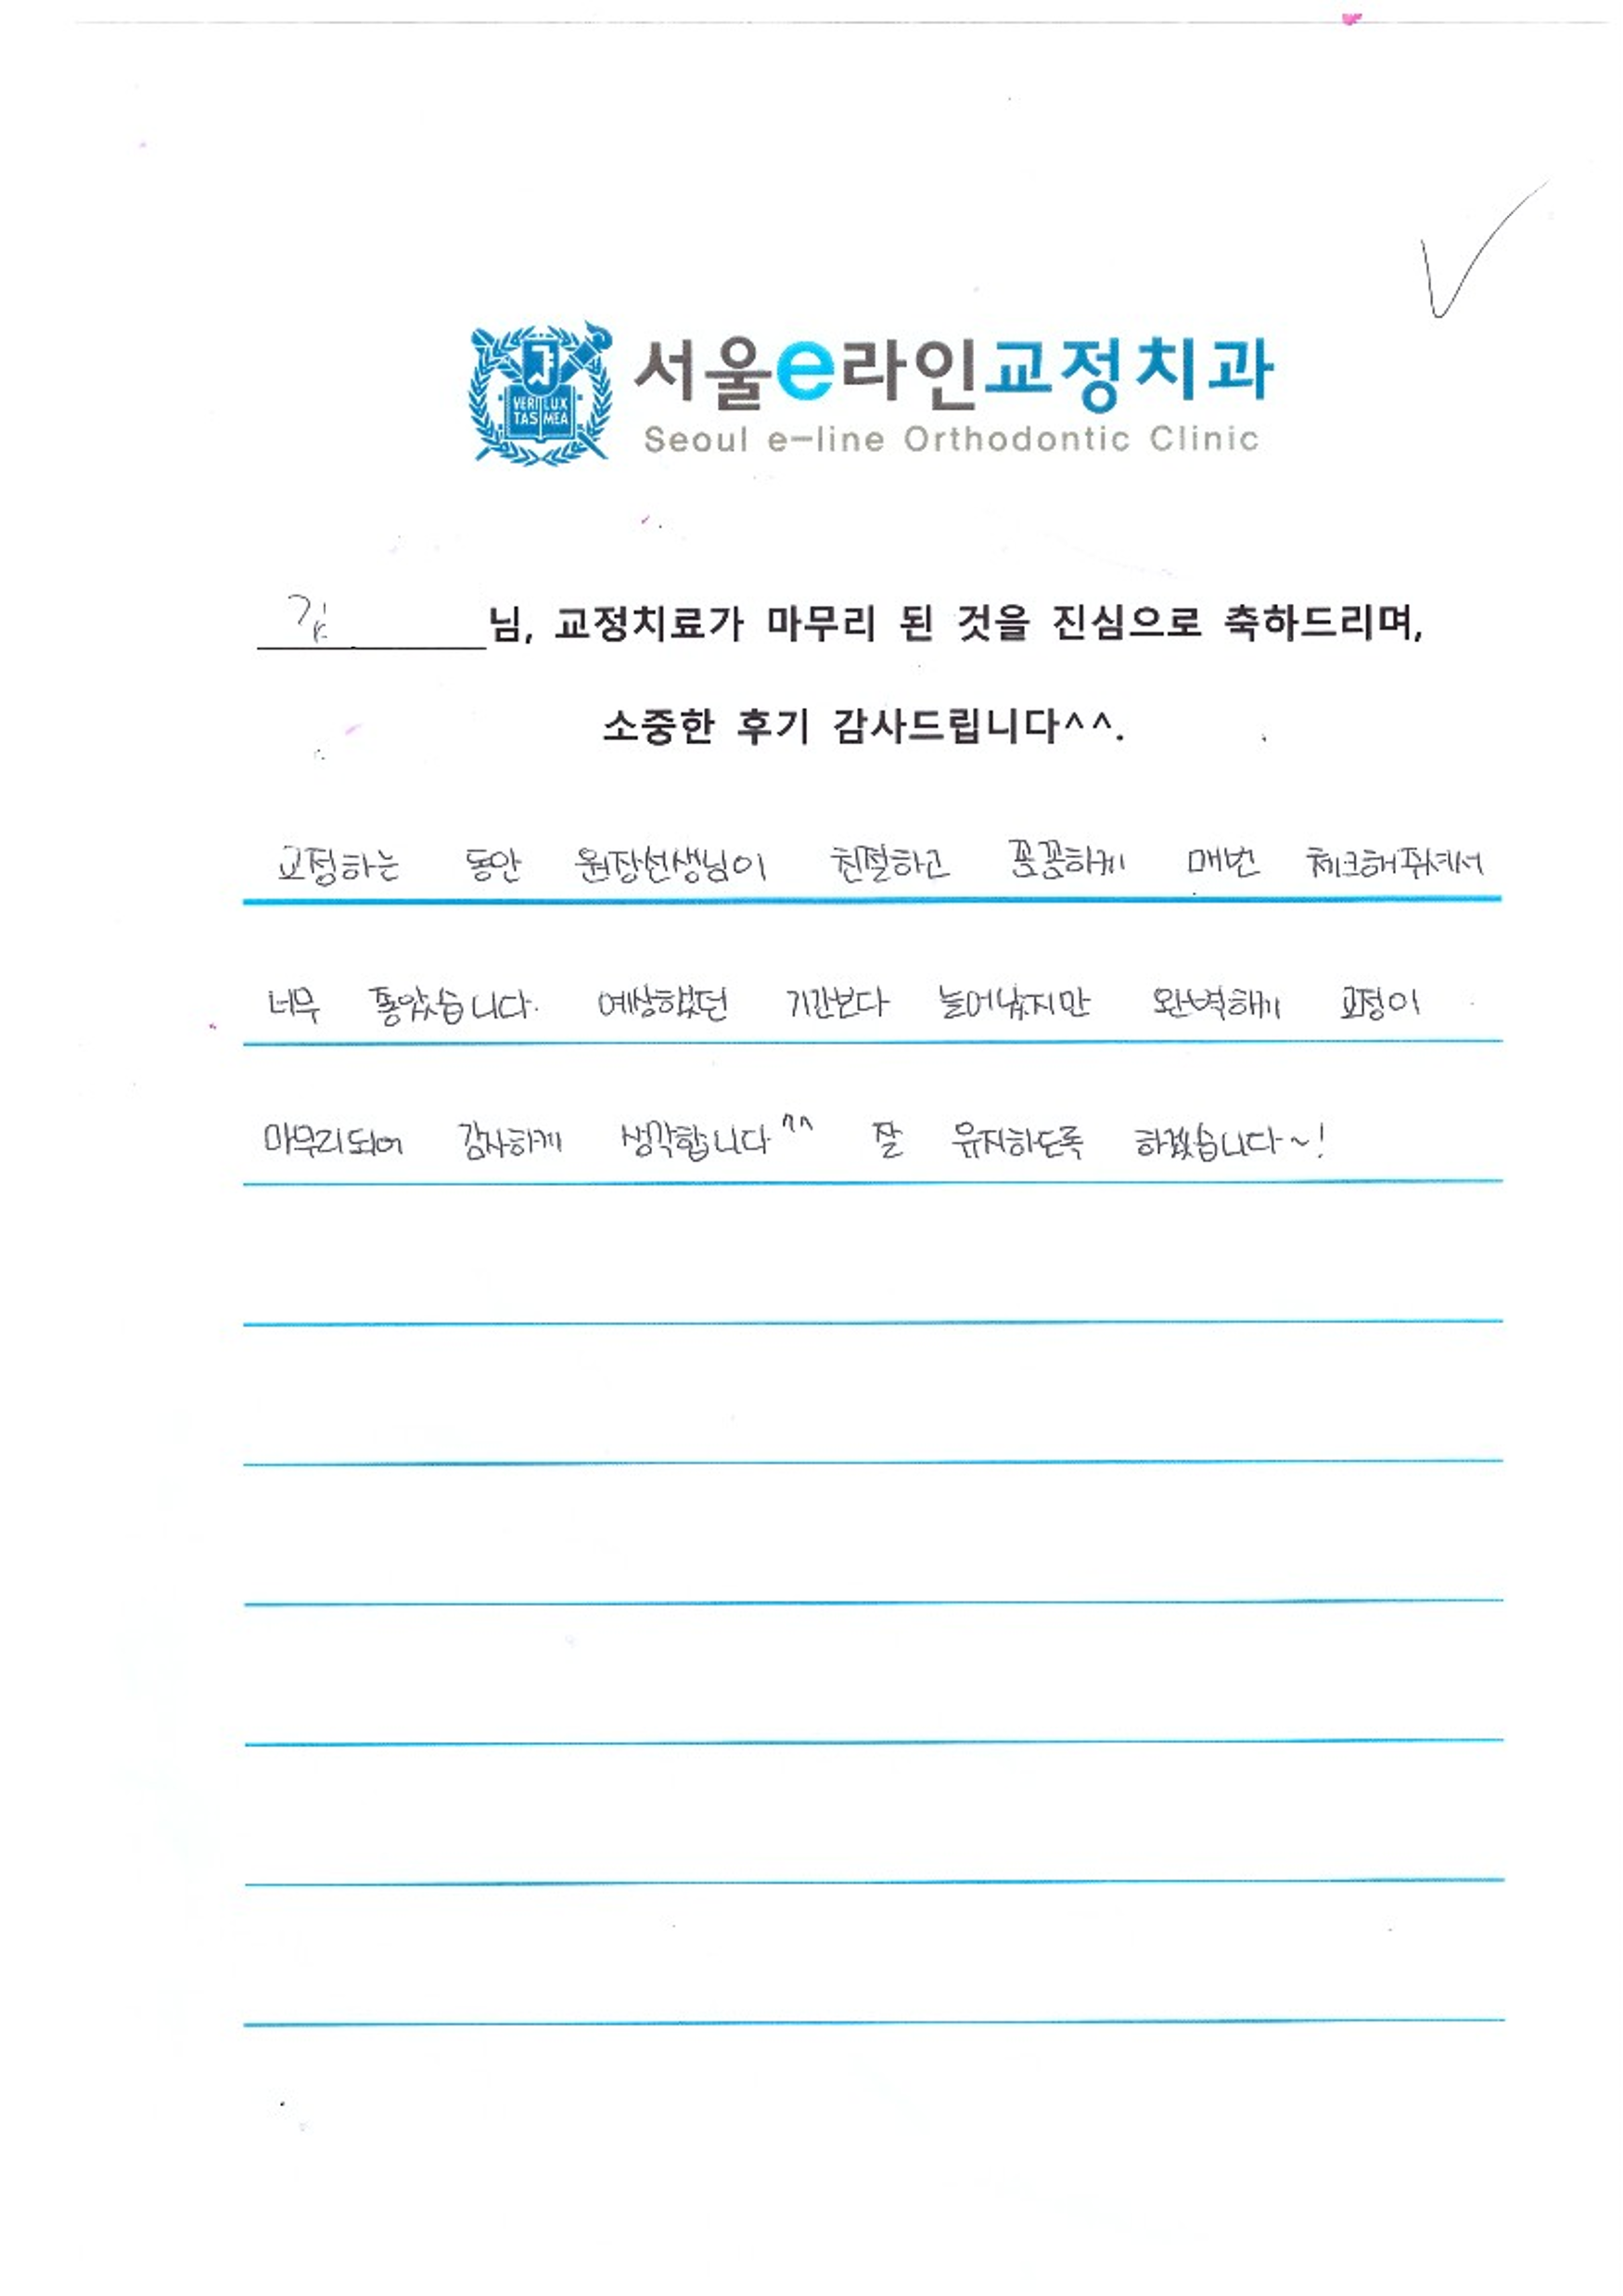 서울e라인교정치과
Seoul e-line Orthodontic Clinic
VERI LUX
TAS MEA
님, 교정치료가 마무리 된 것을 진심으로 축하드리며,
소중한 후기 감사드립니다^^.
교정하는 동안 원장선생님이 친절하고 꼼꼼하게 매번 체크해주셔서
너무 좋았습니다. 예상했던 기간보다 늘어났지만 완벽하게 교정이
마무리되어 감사하게 생각합니다^^ 잘 유지하도록 하겠습니다~!